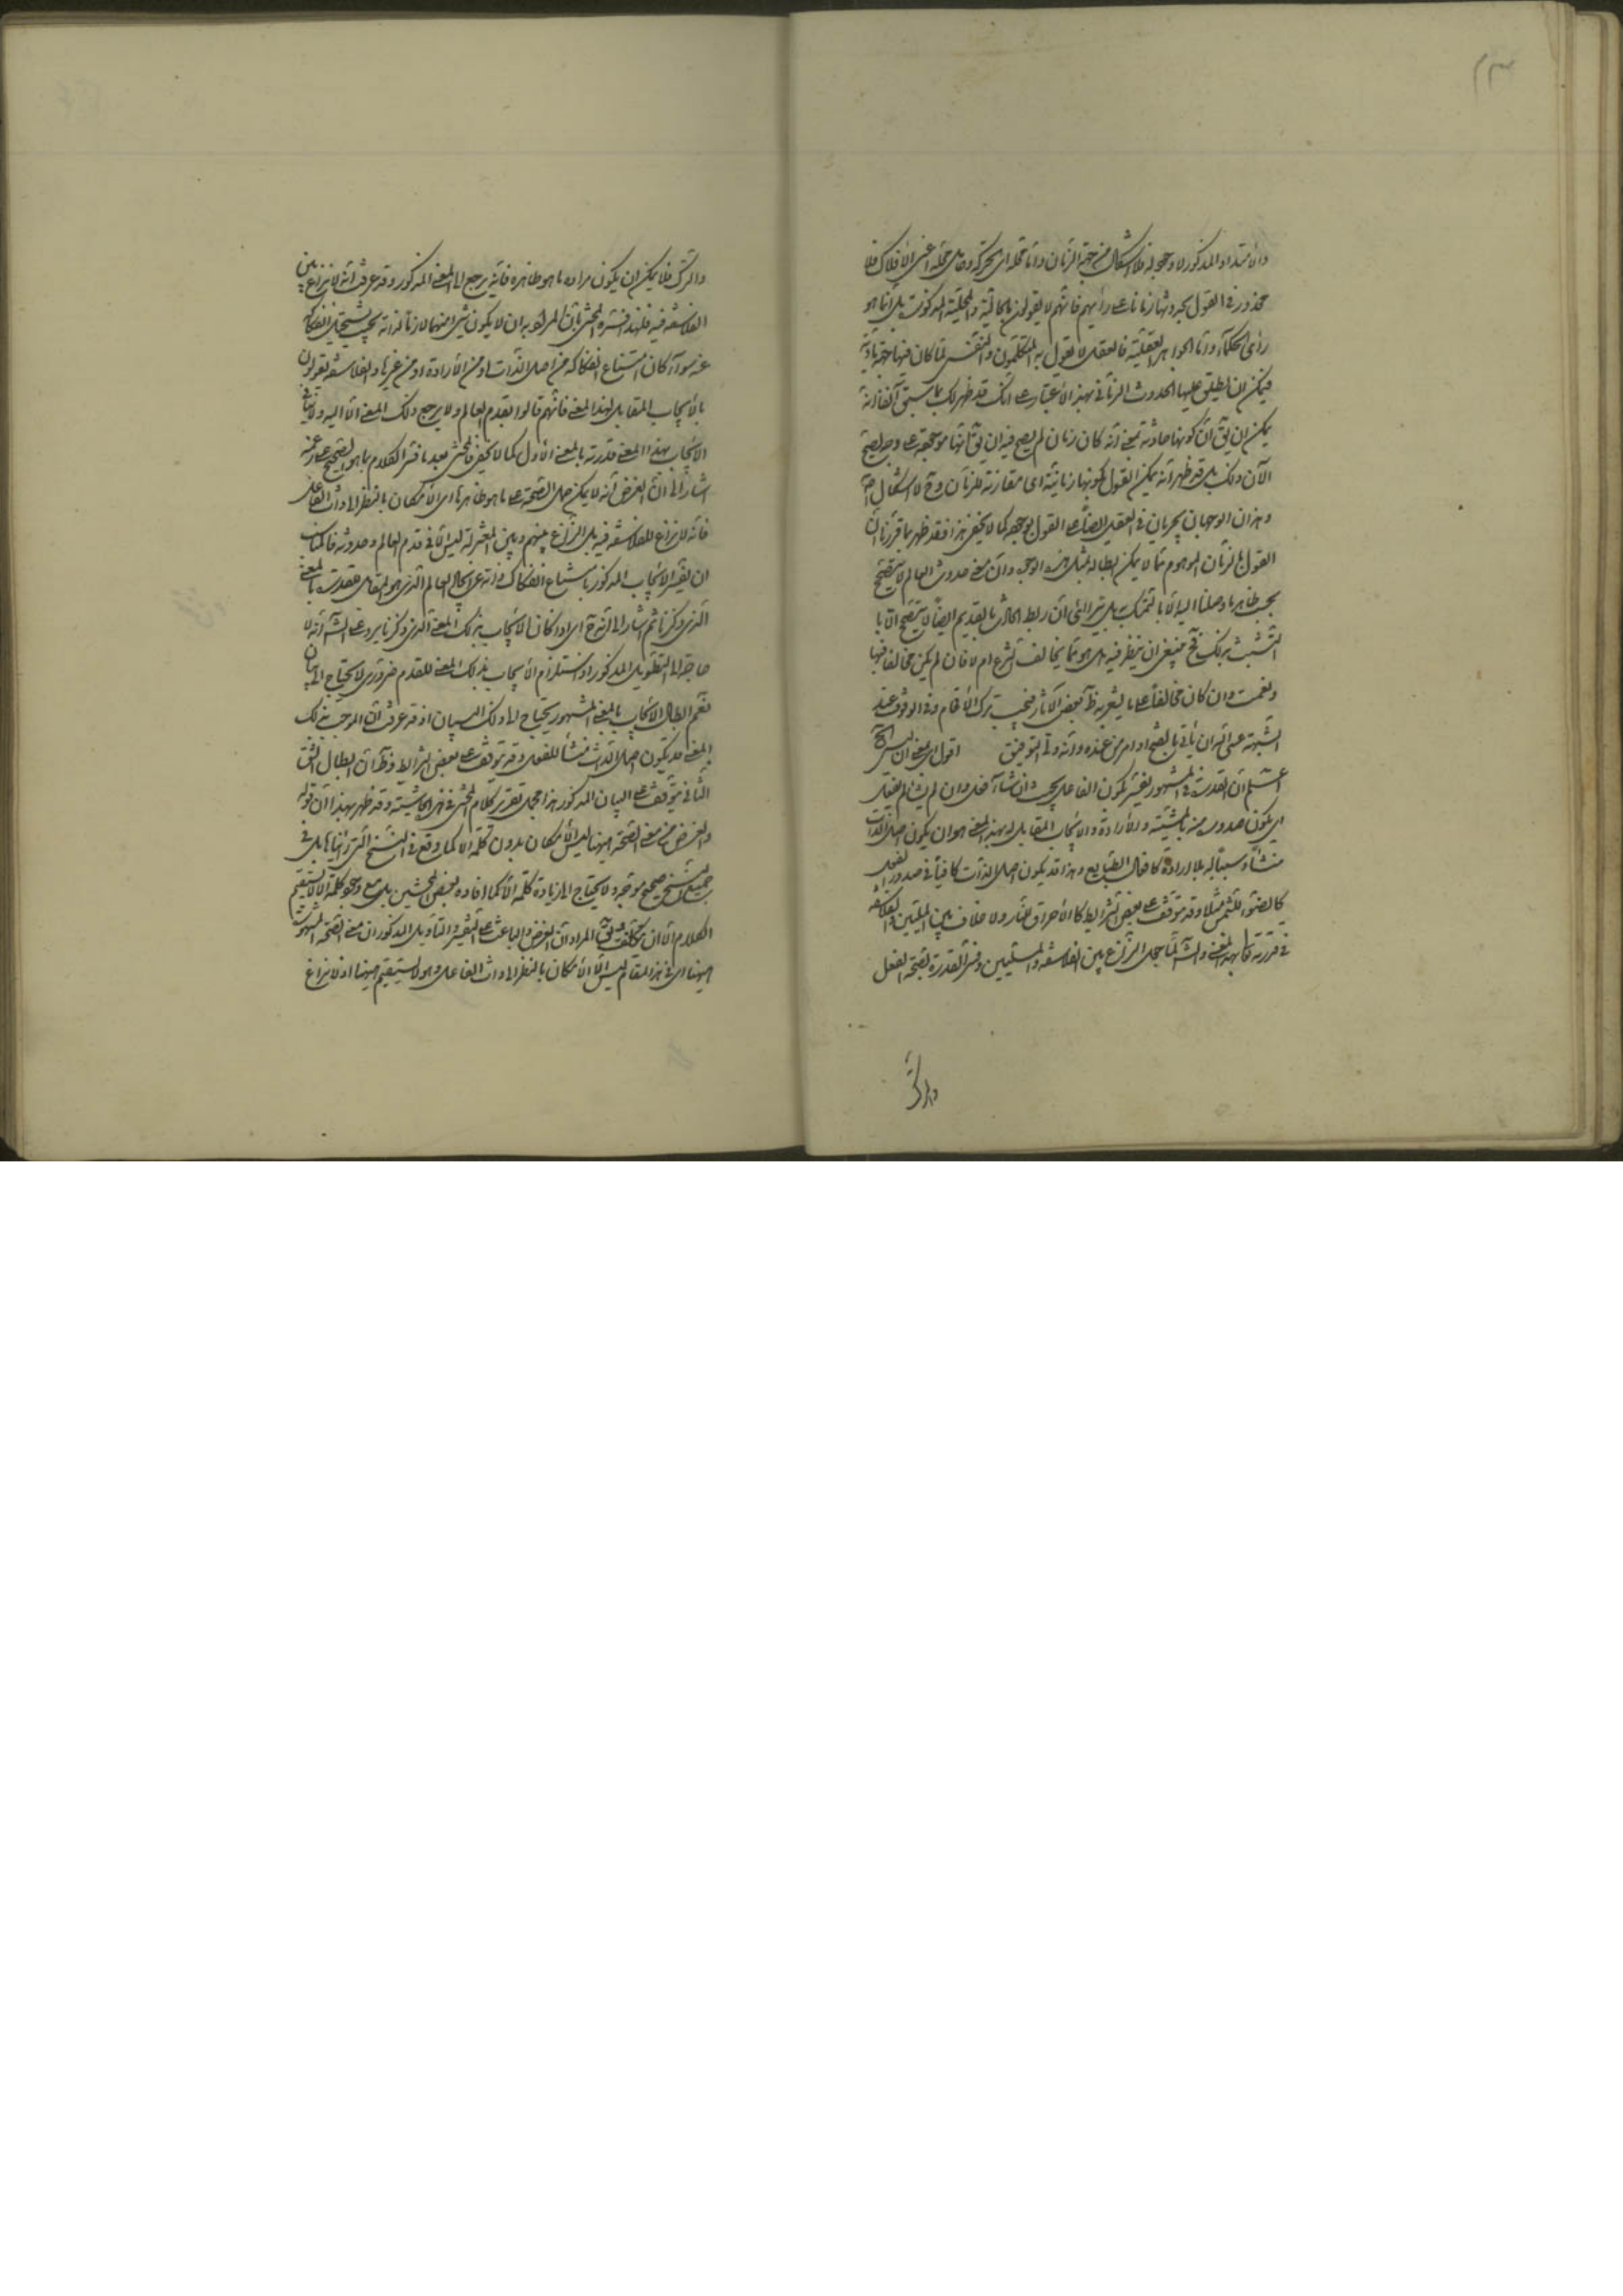 والامتداد المذكور لا وجود له فلا اشكال من جهة الزمان واما محله اى الحركة وحامل محله اعنى الافلاك فلا
محذور فى القول بحدوثها زمانا على رأيهم فانهم لا يقولون بالحالية والمحلية المذكورة بل انما هو
رأى الحكماء واما الجواهر العقلية فالعقل لا يقول به المتكلمون والنفس لما كان فيها جهة مادية
فيمكن ان يطلق عليها الحدوث الزمانى بهذا الاعتبار على انك قد ظهر لك مما سبق آنفا انه
يمكن ان يق ان كونها حادثة بمعنى انه كان زمان لم يصح فيه ان يق انها موجودة على وجه يصح
الآن ذلك بل قد ظهر انه يمكن القول بكونها زمانية اى مقارنة للزمان وح لا اشكال اص
وهذان الوجهان يجريان فى العقل ايضا على القول بوجوده كما لا يخفى هذا فقد ظهر بما قررنا ان
القول بالزمان الموهوم مما لا يمكن ابطاله بمثل هذه الوجوه وان معنى حدوث العالم لا يتضح
بحسب ظاهر ما وصلنا اليه الا بالتمسك به بل يترائى ان ربط الحادث بالقديم ايضا لا يتضح الا با
لتشبث بذلك فح ينبغى ان ينظر فيه هل هو مما يخالف الشرع ام لا فان لم يكن مخالفا فبها
ونعمت وان كان مخالفا على ما يشعر به ظ بعض الآثار فيجب ترك الاقدام والوقوف عند
الشبهة عسى الله ان يأتى بالفتح او امر من عنده وانه ولى التوفيق اقول اى معنى ان ليس الخ
اعلم ان القدرة فى المشهور تفسر بكون الفاعل بحيث ان شاء فعل وان لم يشأ لم يفعل
اى يكون صدوره منه بالمشية والارادة والايجاب المقابل له بهذا المعنى هو ان يكون اصل الذات
منشأ وسببا له بلا ارادة كافعال الطبايع وهذا قد يكون اصل الذات كافيا فى صدور الفعل
كالضوء للشمس مثلا وقد يتوقف على بعض الشرايط كالاحراق للنار ولا خلاف بين المليين والفلاسفة
فى قدرته تعالى بهذا المعنى والش لما جعل النزاع بين الفلاسفة والمسلمين وفسر القدرة بصحة الفعل
والترك
والترك فلا يمكن ان يكون مراده ما هو ظاهره فانه يرجع الى المعنى المذكور وقد عرفت انه لا نزاع بين
الفلاسفة فيه فلهذا فسره المحشى بان المراد به ان لا يكون شئ منهما لازما لذاته بحيث يستحيل انفكاكه
عنه سواء كان امتناع انفكاكه من اصل الذات او من الارادة او من غيرها والفلاسفة يقولون
بالايجاب المقابل لهذا المعنى فانهم قالوا بقدم العالم ولا يرجع ذلك المعنى الا اليه ولا ينافى
الايجاب بهذا المعنى قدرته بالمعنى الاول كما لا يخفى فالمحشى بعد ما فسر الكلام بما هو الصحيح عنده
اشار الى ان الغرض انه لا يمكن حمل الصحة على ما هو ظاهرها اى الامكان بالنظر الى ذات الفاعل
فانه لا نزاع للفلاسفة فيه بل النزاع بينهم وبين المعتزلة ليس الا فى قدم العالم وحدوثه فالمناسب
ان يفسر الايجاب المذكور بامتناع انفكاك ذاته عن ايجاد العالم الذى هو المقابل للقدرة بالمعنى
الذى ذكرنا ثم اشار الى انه ح اى اذا كان الايجاب بذلك المعنى الذى ذكرنا يرد على الش انه لا
حاجة الى التطويل المذكور اذ استلزام الايجاب بذلك المعنى للقدم ضرورى لا يحتاج الى بيان
نعم ابطال الايجاب بالمعنى المشهور يحتاج الى ذلك البيان اذ قد عرفت ان الموجب بذلك
المعنى قد يكون اصل الذات منشأ للفعل وقد يتوقف على بعض الشرايط وظ ان ابطال الشق
الثانى يتوقف على البيان المذكور هذا مجمل تقرير كلام المحشى فى هذه الحاشية وقد ظهر بهذا ان قوله
والغرض من معنى الصحة ههنا ليس الامكان بدون كلمة الا كما وقع فى النسخ التى رأيناها بل فى
جميع النسخ صحيح موجه ولا يحتاج الى زيادة كلمة الا كما افاده بعض المحشين بل مع وجود كلمة الا لا يستقيم
الكلام الا ان يتكلف ويق المراد ان الغرض والباعث على التفسير والتأويل المذكور ان معنى الصحة المشهورة
ههنا اى فى هذا المقام ليس الا الامكان بالنظر الى ذات الفاعل وهو لا يستقيم ههنا اذ لا نزاع